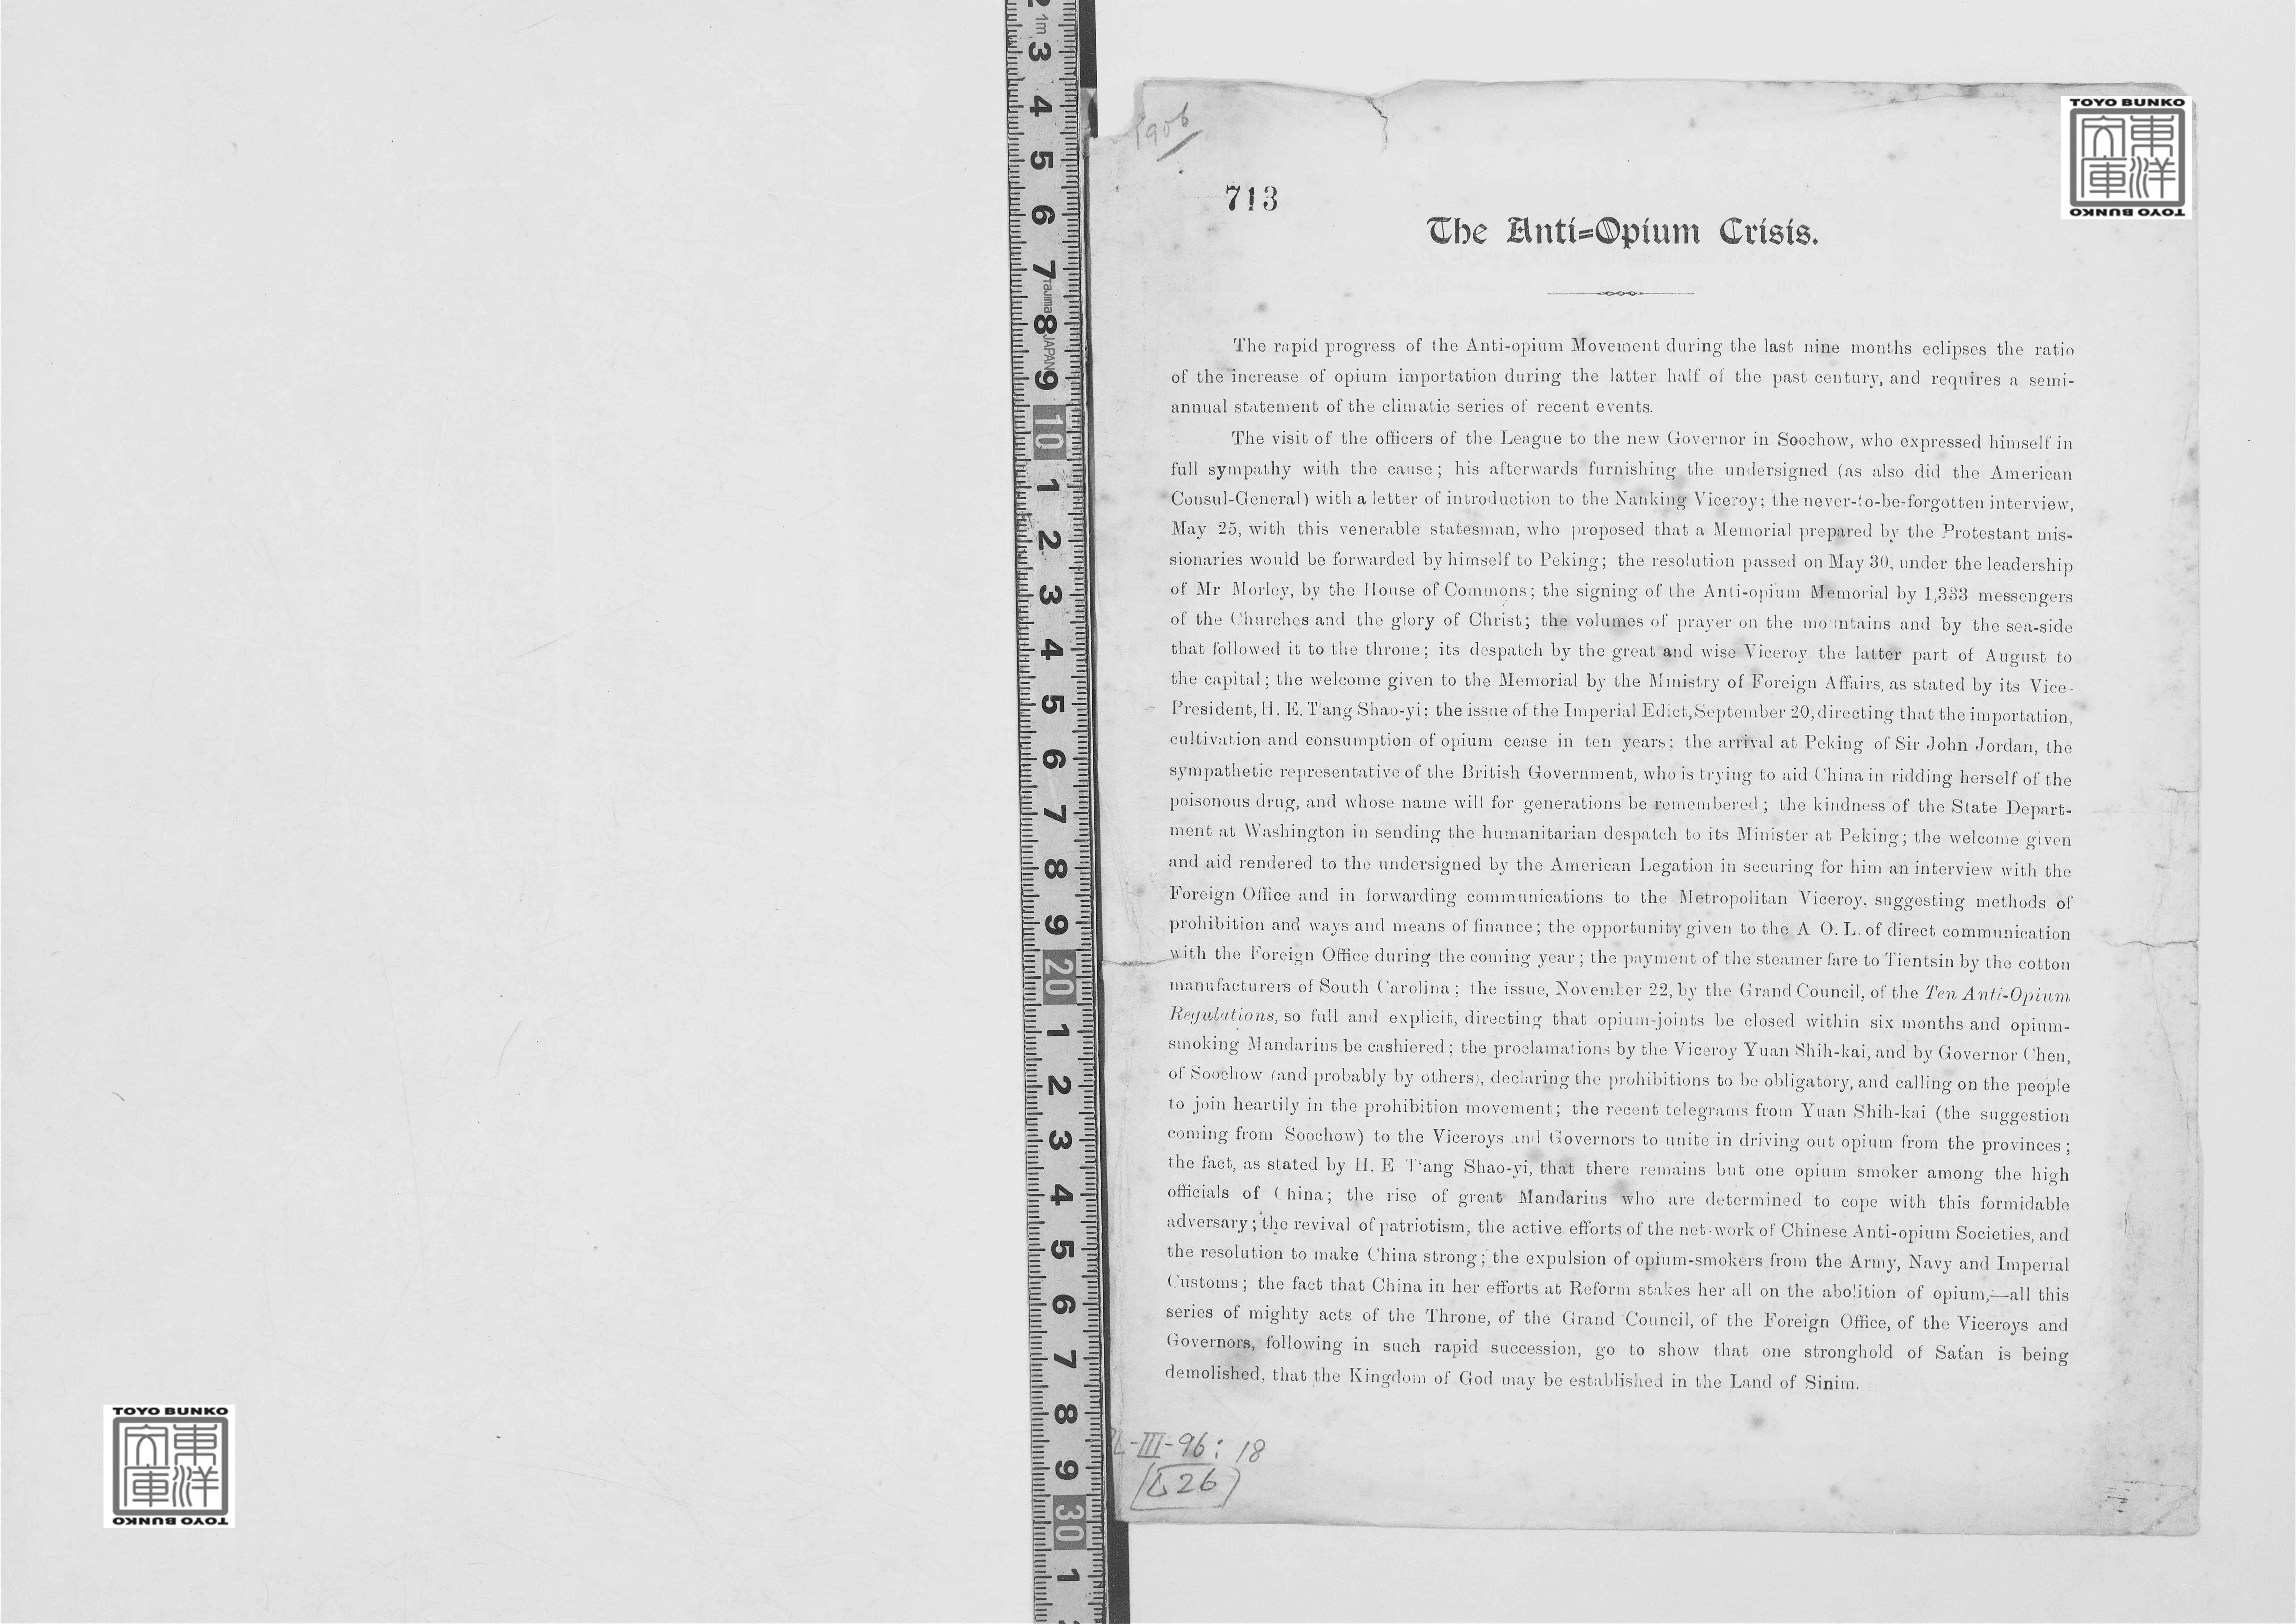 1906
713
The Anti-Opium Crisis.
The rapid progress of the Anti-opium Movement during the last nine months eclipses the ratio
of the increase of opium importation during the latter half of the past century, and requires a semi-
annual statement of the climatic series of recent events.
The visit of the officers of the League to the new Governor in Soochow, who expressed himself in
full sympathy with the cause; his afterwards furnishing the undersigned (as also did the American
Consul-General) with a letter of introduction to the Nanking Viceroy; the never-to-be-forgotten interview,
May 25, with this venerable statesman, who proposed that a Memorial prepared by the Protestant mis-
sionaries would be forwarded by himself to Peking; the resolution passed on May 30, under the leadership
of Mr Morley, by the House of Commons; the signing of the Anti-opium Memorial by 1,333 messengers
of the Churches and the glory of Christ; the volumes of prayer on the mountains and by the sea-side
that followed it to the throne; its despatch by the great and wise Viceroy the latter part of August to
the capital; the welcome given to the Memorial by the Ministry of Foreign Affairs, as stated by its Vice-
President, H. E. T'ang Shao-yi; the issue of the Imperial Edict, September 20, directing that the importation,
cultivation and consumption of opium cease in ten years; the arrival at Peking of Sir John Jordan, the
sympathetic representative of the British Government, who is trying to aid China in ridding herself of the
poisonous drug, and whose name will for generations be remembered; the kindness of the State Depart-
ment at Washington in sending the humanitarian despatch to its Minister at Peking; the welcome given
and aid rendered to the undersigned by the American Legation in securing for him an interview with the
Foreign Office and in forwarding communications to the Metropolitan Viceroy, suggesting methods of
prohibition and ways and means of finance; the opportunity given to the A O. L. of direct communication
with the Foreign Office during the coming year; the payment of the steamer fare to Tientsin by the cotton
manufacturers of South Carolina; the issue, November 22, by the Grand Council, of the Ten Anti-Opium
Regulations, so full and explicit, directing that opium-joints be closed within six months and opium-
smoking Mandarins be cashiered; the proclamations by the Viceroy Yuan Shih-kai, and by Governor Chen,
of Soochow (and probably by others), declaring the prohibitions to be obligatory, and calling on the people
to join heartily in the prohibition movement; the recent telegrams from Yuan Shih-kai (the suggestion
coming from Soochow) to the Viceroys and Governors to unite in driving out opium from the provinces;
the fact, as stated by H. E T'ang Shao-yi, that there remains but one opium smoker among the high
officials of China; the rise of great Mandarins who are determined to cope with this formidable
adversary; the revival of patriotism, the active efforts of the net-work of Chinese Anti-opium Societies, and
the resolution to make China strong; the expulsion of opium-smokers from the Army, Navy and Imperial
Customs; the fact that China in her efforts at Reform stakes her all on the abolition of opium,—all this
series of mighty acts of the Throne, of the Grand Council, of the Foreign Office, of the Viceroys and
Governors, following in such rapid succession, go to show that one stronghold of Satan is being
demolished, that the Kingdom of God may be established in the Land of Sinim.
-III-96: 18
26
TOYO BUNKO
東洋文庫
TOYO BUNKO
TOYO BUNKO
東洋文庫
TOYO BUNKO
1m
3
4
5
6
7
Tajima
8
JAPAN
9
10
1
2
3
4
5
6
7
8
9
20
1
2
3
4
5
6
7
8
9
30
1